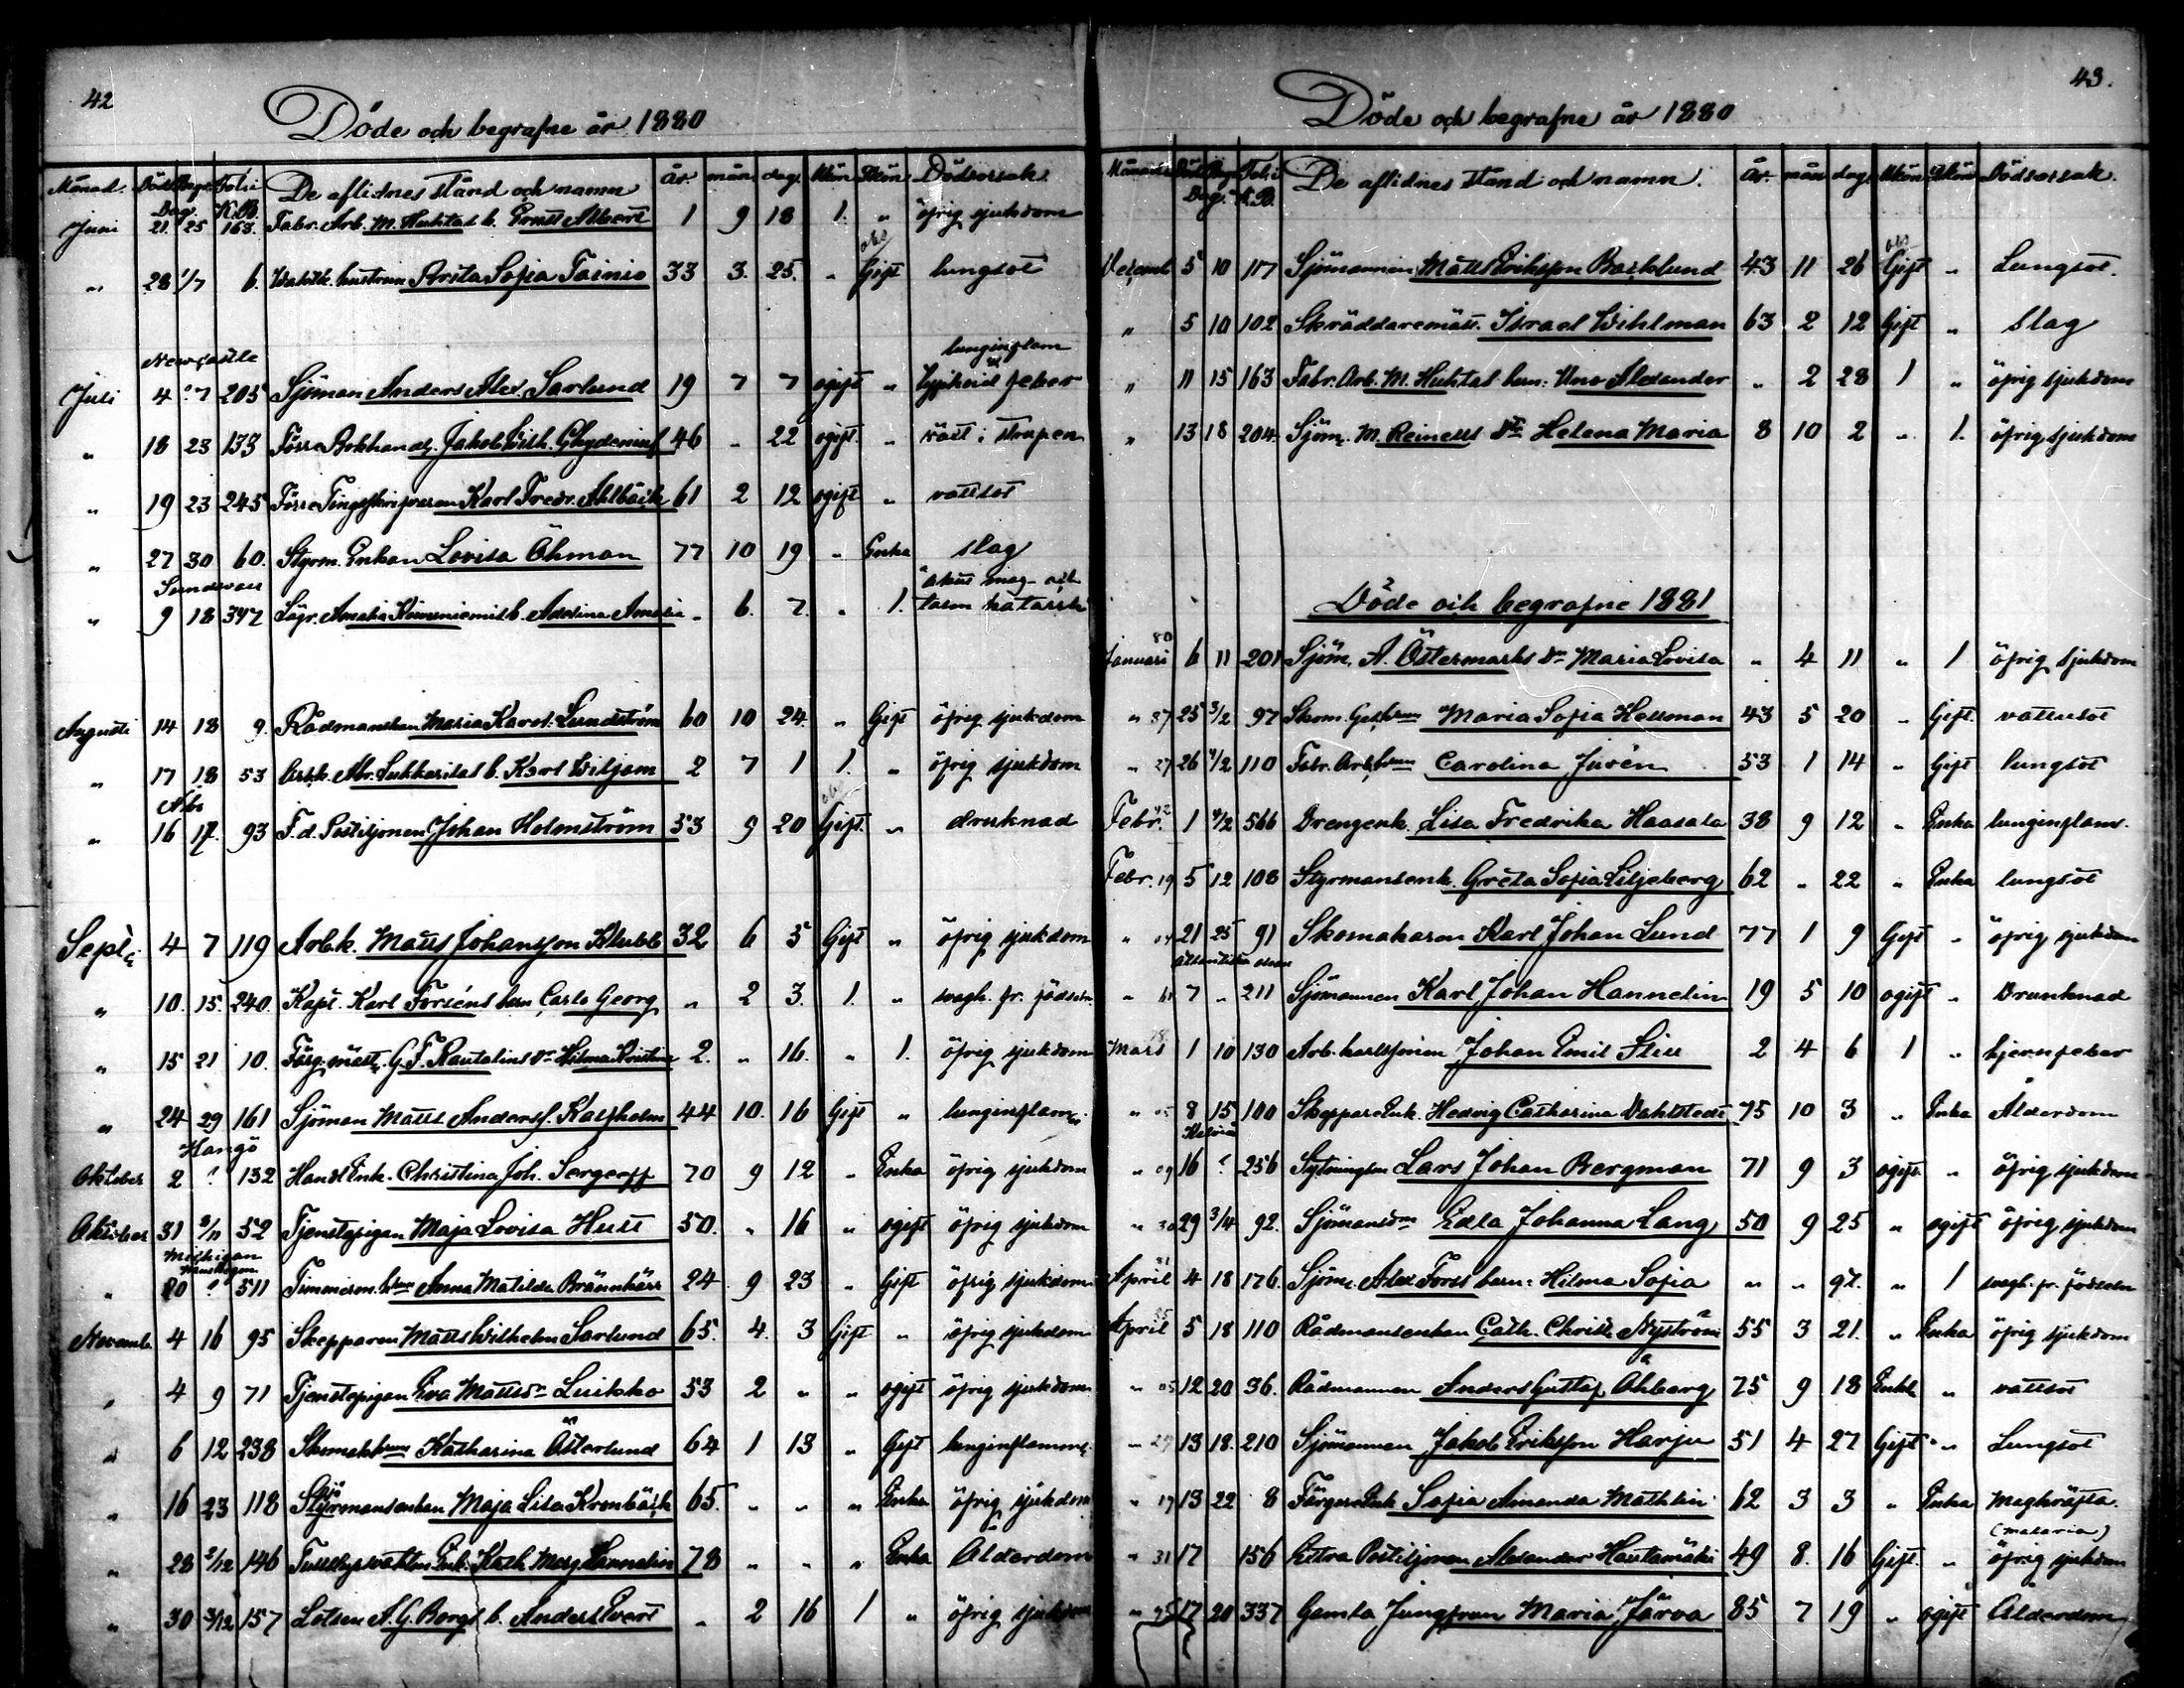 42
Döde och begrafne år 1880
Månad. Död Begr. Folie De aflidnes stånd och namn år. mån. dag. Mkön Qkön Dödsorsak.
Dag. K.B.
Juni 21. 25 163. Fabr. Arb. M. Huhtas b. Ernst Albert 1 9 18 1. " öfrig sjukdom
obs
" 28 1/7 6. hustrun Greta Sofia Tainio 33 3. 25. " Gift lungsot
Newcastle lunginflam
Juli 4 ? 7 205 Sjöman Anders Alex. Sarlund 19 7 7 ogift " typhoid feber
" 18 23 133 Förre Bokhandl. Jakob Wilh. Chydenius 46 " 22 ogift. " växt i strupen
" 19 23 245 Förre Tingsskrifvaren Karl Fredr. Ahlbäck 61 2 12 ogift " vattsot
" 27 30 60. Styrm. Enkan Lovisa Öhman 77 10 19 " Enka slag
Sundsvall akut mag- och
" 9 18 347 Amalia b. Adolina Amalia " 6. 7. " 1. tarm katarrh
Augusti 14 18 9. Rådmanskan Maria Karol. Lundström 60 10 24. " Gift öfrig sjukdom
" 17 18 53 Arbk. Abr. Sukkarilas b. Karl Wiljam 2 7 1 1. " öfrig sjukdom
Åbo
" 16 17. 93 F.d. Postiljonen Johan Holmström 53 9 20 Gift. " druknad
Septe 4 7 119 Arbk. Matts Johansson Klubb 32 6 5 Gift " öfrig sjukdom
" 10. 15. 240. Kapt. Karl Forséns barn Carlo Georg " 2 3. 1. " svagh. fr. födseln
" 15 21 10. Färg.mäst. G. F. Rautelins dr Hilma Kristina 2. " 16. " 1. öfrig sjukdom
" 24 29 161 Sjöman Matts Anderss. Kalfholm 44 10. 16 Gift " lunginflam.
Hangö
Oktober 2 ? 132 Handl Enk. Christina Joh. Sergeeff 70 9 12 " Enka öfrig sjukdom
Oktober 31 2/11 52 Tjenstepigan Maja Lovisa Hutt 50. " 16 " ogift öfrig sjukdom
Michigan
" 20 ? 511 Timmerm. hru Anna Matilda Brännkärr 24 9 23 " Gift öfrig sjukdom
Novemb. 4 16 95 Skepparen Matts Wilhelm Sarlund 65. 4. 3 Gift " öfrig sjukdom
" 4 9 71 Tjenstepigan Eva Mattsdr Luikko 53 2 " " ogift öfrig sjukdom
" 6 12 238 Skomak hru Katharina Österlund 64 1 13 " Gift lunginflamm.
" 16 23 118 Sjömansenkan Maja Lisa Kronbäck 65. " " " Enka öfrig sjukdom
" 28 2/12 146 Tulluppvakten Enk. Kath Marg Hannelin 78 " " " Enka Ålderdom
" 30 3/12 157 Lotsen A. G. Borgs b. Anders Evert " 2 16 1 " öfrig sjukdom
43.
Döde och begrafne år 1880
Månad Död Begr. Fol. i De aflidnes stånd och namn. År. mån dag. Mkön Qkön Dödsorsak.
Dag. K.B.
obs
Decemb 5 10 117 Sjömannen Matts Eriksson Backlund 43 11 26 Gift " Lungsot.
" 5 10 102 Skräddaremäst. Israel Wihlman 63 2 12 Gift " slag
" 11 15 163 Fabr. Arb. M. Huhtas barn: Uno Alexander " 2 28 1 " öfrig sjukdom
" 13 18 204. Sjöm. M. Reinells dtr Helena Maria 8 10 2 " 1. öfrig sjukdom
Döde och begrafne 1881
80
Januari 6 11 201 Sjöm. A. Östermarks dr Maria Lovisa " 4 11 " 1 öfrig sjukdom
" 37 25 3/2 97 Skom. Ges. hru Maria Sofia Hellman 43 5 20 " Gift. vattusot
" 27 26 4/2 110 Fabr. Arb. hru Carolina Jusén 53 1 14 " Gift lungsot
42
Febr. 1 4/2 566 Drengenk. Lisa Fredrika Haasala 38 9 12 " Enka lunginflam.
Febr. 19 5 12 108 Styrmansenk. Greta Sofia Liljeberg 62 " 22 " Enka lungsot
" 04 21 25 91 Skomakaren Karl Johan Lund 77 1 9 Gift " öfrig sjukdom
Atlantiska ocean
" 61 7 " 211 Sjömannen Karl Johan Hannelin 19 5 10 ogift " Drunknad
78
Mars 1 10 130 Arb. karlssonen Johan Emil 2 4 6 1 " hjernfeber
" 05 8 15 100 Skeppare Enk. Hedvig Catharina Dahlstedt 75 10 3 " Enka Ålderdom
Kelviå
" 09 16 ? 256 Sytningsm Lars Johan Bergman 71 9 3 ogift " öfrig sjukdom
" 30 29 3/4 92. Sjömansdr Edla Johanna Lang 50 9 25 " ogift öfrig sjukdom
81
April 4 18 176. Sjöm. Alex Forss barn: Hilma Sofia " " 9t. " 1 svagh. fr. födseln
25
April 5 18 110 Rådmansenkan Cath. Christ. Nyström 55 3 21. " Enka öfrig sjukdom
" 05 12 20 36. Rådmannen Anders Gustaf Åberg 75 9 18 Enkl " vattsot
" 29 13 18. 210 Sjömannen Jakob Eriksson Harju 51 4 27 Gift " Lungsot
" 19 13 22 8 Färgare Enk Sofia Amanda Mathlin 62 3 3 " Enka Magkräfta.
(malaria)
" 31 17 156 Extra Postiljonen Alexander Hautamäki 49 8. 16 Gift. " öfrig sjukdom
" 95 17 20 337 Gamla Jungfrun Maria Järva 85 7 19 " ogift Ålderdom